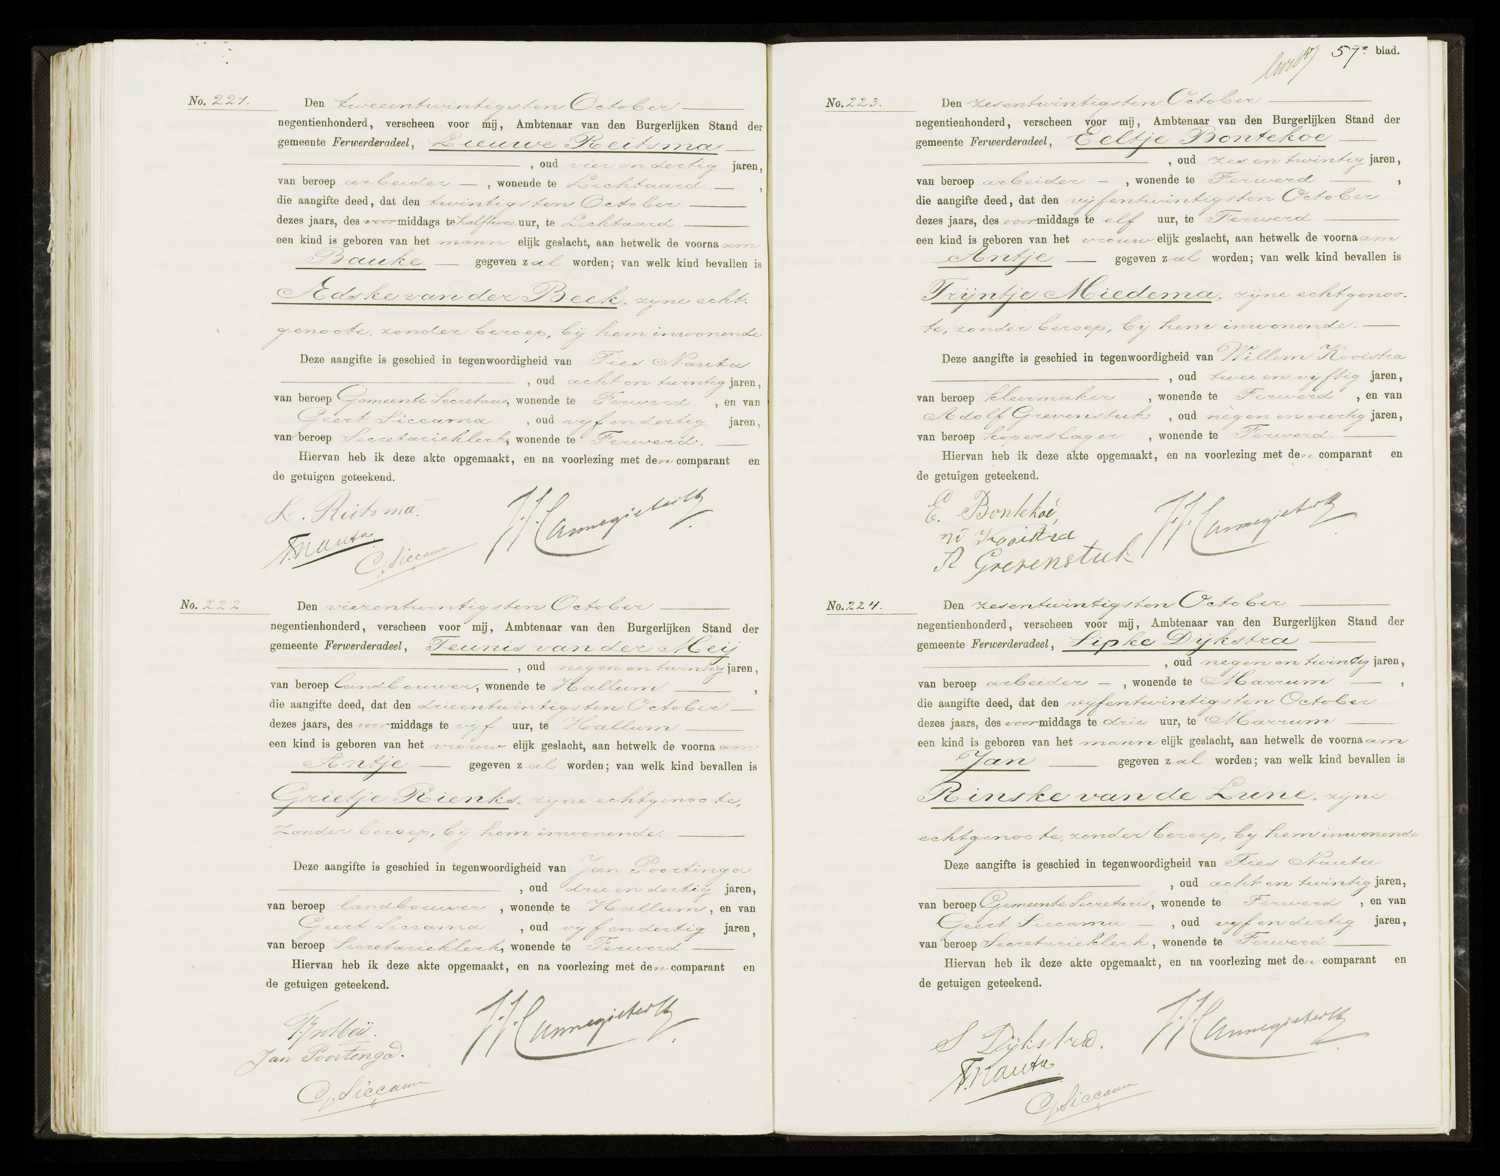 No. 221. Den tweeentwintigsten October
negentienhonderd, verscheen voor mij, Ambtenaar van den Burgerlijken Stand der
gemeente Ferwerderadeel, Lieuwe Reitsma
, oud vier en dertig jaren,
van beroep arbeider, wonende te Lichtaard,
die aangifte deed, dat den twintigsten October
dezes jaars, des voormiddags te half twee uur, te Lichtaard
een kind is geboren van het mann elijk geslacht, aan hetwelk de voornaam
Bauke gegeven zal worden; van welk kind bevallen is
Edske van der Beek, zijne echt-
genoote, zonder beroep, bij hem inwonende
Deze aangifte is geschied in tegenwoordigheid van Fres Nauta
, oud acht en twintig jaren,
van beroep Gemeente Secretaris, wonende te Ferwerd, en van
Geert Siccama, oud vijf en dertig jaren,
van beroep Secretarieklerk, wonende te Ferwerd.
Hiervan heb ik deze akte opgemaakt, en na voorlezing met den comparant en
de getuigen geteekend.
L. Reitsma.
F. Nauta
G. Siccama
J. J. Cannegieter
No. 222 Den vierentwintigsten October
negentienhonderd, verscheen voor mij, Ambtenaar van den Burgerlijken Stand der
gemeente Ferwerderadeel, Teunis van der Meij
, oud negen en twintig jaren,
van beroep landbouwer, wonende te Hallum,
die aangifte deed, dat den drieentwintigsten October
dezes jaars, des voormiddags te vijf uur, te Hallum
een kind is geboren van het vrouw elijk geslacht, aan hetwelk de voornaam
Antje gegeven zal worden; van welk kind bevallen is
Grietje Rienks, zijne echtgenoote,
zonder beroep, bij hem inwonende.
Deze aangifte is geschied in tegenwoordigheid van Jan Poortinga
, oud drie en dertig jaren,
van beroep landbouwer, wonende te Hallum, en van
Geert Siccama, oud vijf en dertig jaren,
van beroep Secretarieklerk, wonende te Ferwerd
Hiervan heb ik deze akte opgemaakt, en na voorlezing met den comparant en
de getuigen geteekend.
Jan Poortinga.
G. Siccama
J. J. Cannegieter
57e blad.
No. 223. Den zesentwintigsten October
negentienhonderd, verscheen voor mij, Ambtenaar van den Burgerlijken Stand der
gemeente Ferwerderadeel, Eeltje Bontekoe
, oud zes en twintig jaren,
van beroep arbeider, wonende te Ferwerd,
die aangifte deed, dat den vijfentwintigsten October
dezes jaars, des voormiddags te elf uur, te Ferwerd
een kind is geboren van het vrouw elijk geslacht, aan hetwelk de voornaam
Antje gegeven zal worden; van welk kind bevallen is
Trijntje Miedema, zijne echtgenoo-
te, zonder beroep, bij hem inwonende.
Deze aangifte is geschied in tegenwoordigheid van Willem Kooistra
, oud twee en vijftig jaren,
van beroep kleermaker, wonende te Ferwerd, en van
Adolf Grevenstuk, oud negen en veertig jaren,
van beroep koperslager, wonende te Ferwerd.
Hiervan heb ik deze akte opgemaakt, en na voorlezing met den comparant en
de getuigen geteekend.
E. Bontekoe
W Kooistra
A Grevenstuk
J. J. Cannegieter
No. 224. Den zesentwintigsten October
negentienhonderd, verscheen voor mij, Ambtenaar van den Burgerlijken Stand der
gemeente Ferwerderadeel, Sipke Dijkstra
, oud negen en twintig jaren,
van beroep arbeider, wonende te Marrum,
die aangifte deed, dat den vijfentwintigsten October
dezes jaars, des voormiddags te drie uur, te Marrum
een kind is geboren van het mann elijk geslacht, aan hetwelk de voornaam
Jan gegeven zal worden; van welk kind bevallen is
Rinske van de Lune, zijne
echtgenoote, zonder beroep, bij hem inwonende
Deze aangifte is geschied in tegenwoordigheid van Fres Nauta
, oud acht en twintig jaren,
van beroep Gemeente Secretaris, wonende te Ferwerd, en van
Geert Siccama, oud vijf en dertig jaren,
van beroep Secretarieklerk, wonende te Ferwerd
Hiervan heb ik deze akte opgemaakt, en na voorlezing met den comparant en
de getuigen geteekend.
S Dijkstra.
F. Nauta
G. Siccama
J. J. Cannegieter